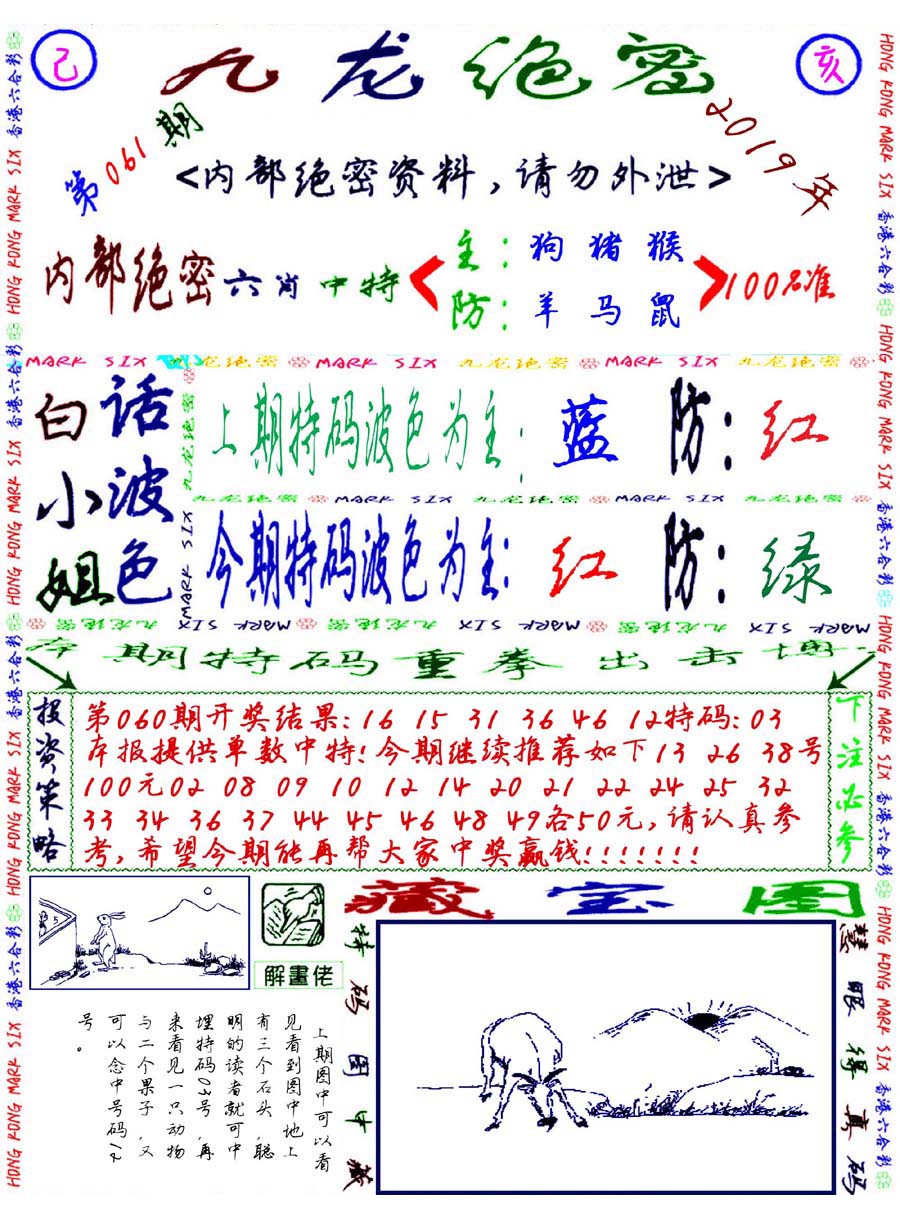 己
九龙绝密
亥
第061期
2019年
<内部绝密资料，请勿外泄>
内部绝密六肖中特
主：狗猪猴
防：羊马鼠
100%准
MARK SIX 九龙绝密 MARK SIX 九龙绝密 MARK SIX 九龙绝密
白话
小波
姐色
上期特码波色为主：蓝 防：红
九龙绝密 MARK SIX 九龙绝密 MARK SIX 九龙绝密
今期特码波色为主：红 防：绿
九龙绝密
MARK SIX
MARK SIX 九龙绝密 MARK SIX 九龙绝密 MARK SIX 九龙绝密
本期特码重拳出击博
投资策略
第060期开奖结果:16 15 31 36 46 12特码:03
本报提供单数中特!今期继续推荐如下13 26 38号
100元02 08 09 10 12 14 20 21 22 24 25 32
33 34 36 37 44 45 46 48 49各50元,请认真参
考,希望今期能再帮大家中奖赢钱!!!!!!!
下注必参
5
解畫佬
藏宝图
特码图中藏
慧眼得真码
上期图中可以看
见看到图中地上
有三个石头,聪
明的读者就可中
埋特码03号,再
来看见一只动物
与二个果子,又
可以念中号码12
号。
香港六合彩 HONG KONG MARK SIX 香港六合彩 HONG KONG MARK SIX 香港六合彩 HONG KONG MARK SIX 香港六合彩 HONG KONG MARK SIX
HONG KONG MARK SIX 香港六合彩 HONG KONG MARK SIX 香港六合彩 HONG KONG MARK SIX 香港六合彩 HONG KONG MARK SIX 香港六合彩